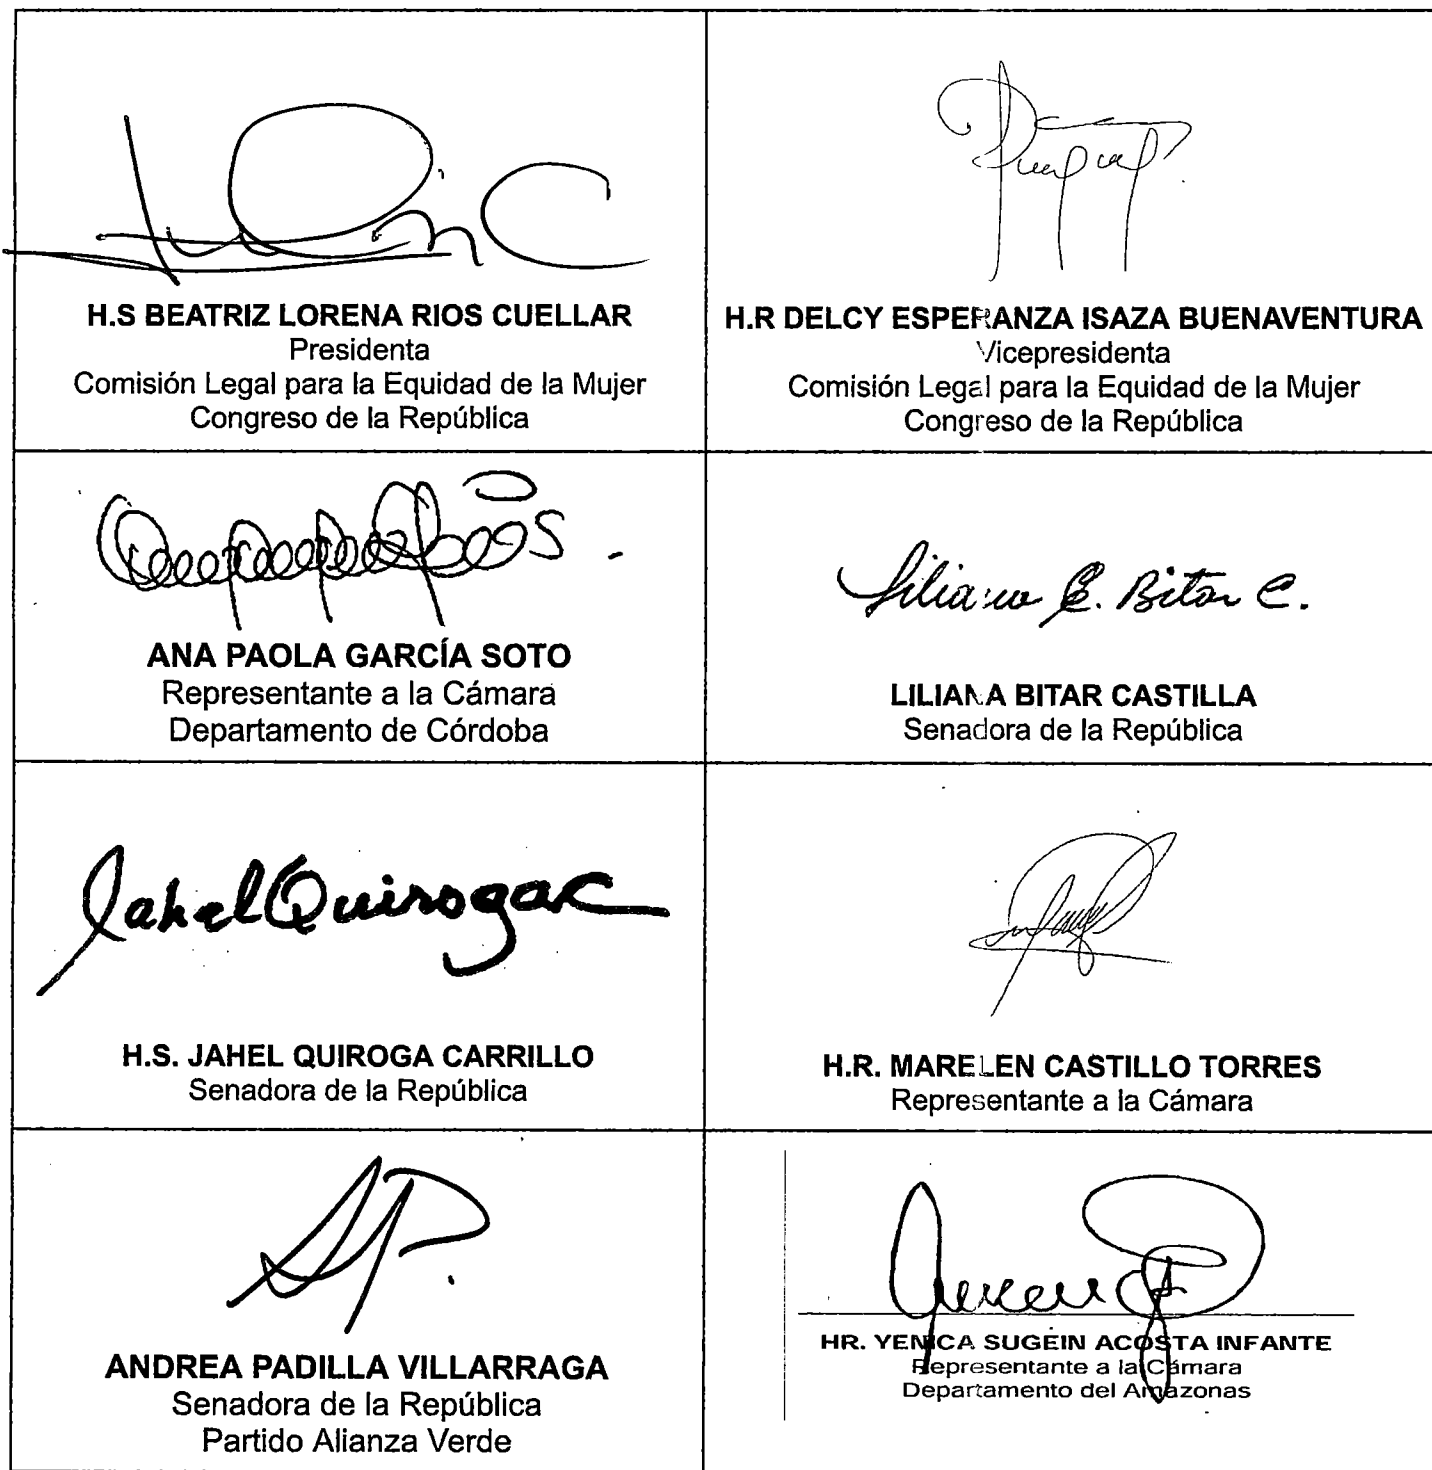 H.S BEATRIZ LORENA RIOS CUELLAR
Presidenta
Comisión Legal para la Equidad de la Mujer
Congreso de la República
H.R DELCY ESPERANZA ISAZA BUENAVENTURA
Vicepresidenta
Comisión Legal para la Equidad de la Mujer
Congreso de la República
ANA PAOLA GARCÍA SOTO
Representante a la Cámara
Departamento de Córdoba
Liliana E. Bitar C.
LILIANA BITAR CASTILLA
Senadora de la República
Jahel Quiroga C
H.S. JAHEL QUIROGA CARRILLO
Senadora de la República
H.R. MARELEN CASTILLO TORRES
Representante a la Cámara
ANDREA PADILLA VILLARRAGA
Senadora de la República
Partido Alianza Verde
HR. YENICA SUGEIN ACOSTA INFANTE
Representante a la Cámara
Departamento del Amazonas